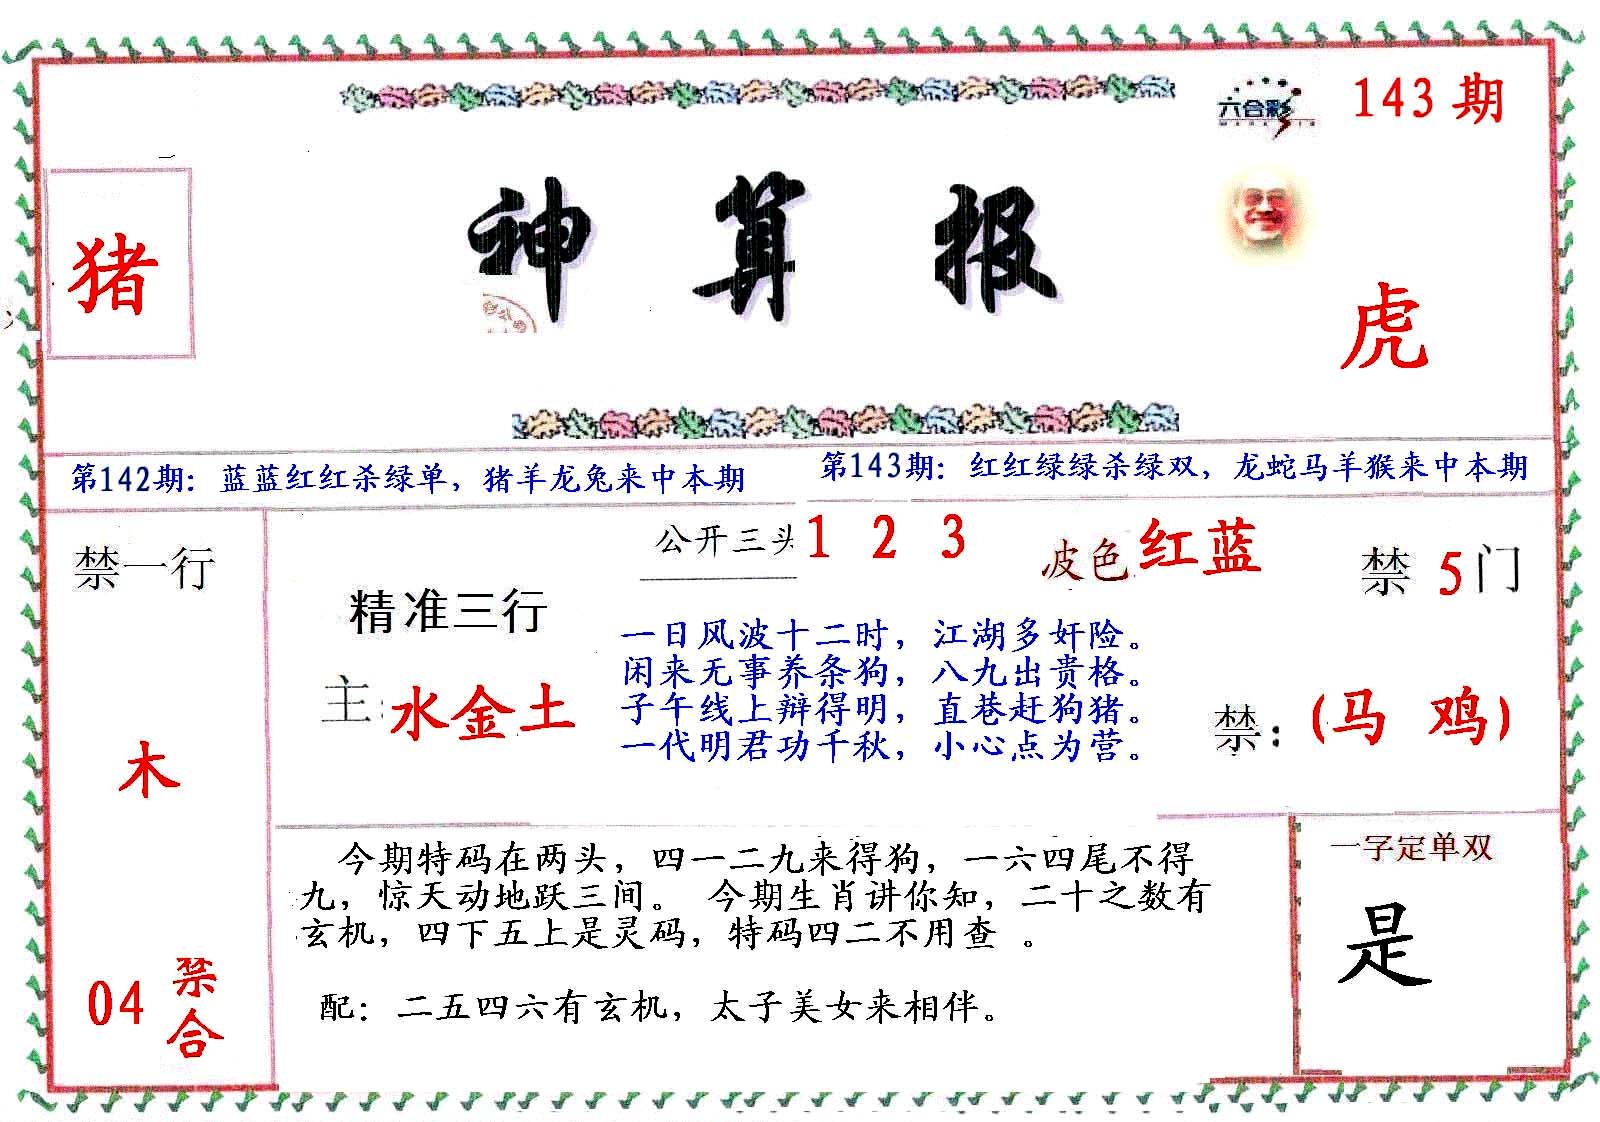 六合彩
143 期
猪
神 算 报
虎
第142期：蓝蓝红红杀绿单，猪羊龙兔来中本期
第143期：红红绿绿杀绿双，龙蛇马羊猴来中本期
禁一行
木
04 禁合
公开三头 1 2 3
波色 红蓝
禁 5 门
精准三行
主：水金土
一日风波十二时，江湖多奸险。
闲来无事养条狗，八九出贵格。
子午线上辩得明，直巷赶狗猪。
一代明君功千秋，小心点为营。
禁：(马 鸡)
今期特码在两头，四一二九来得狗，一六四尾不得
九，惊天动地跃三间。 今期生肖讲你知，二十之数有
玄机，四下五上是灵码，特码四二不用查 。
配：二五四六有玄机，太子美女来相伴。
一字定单双
是